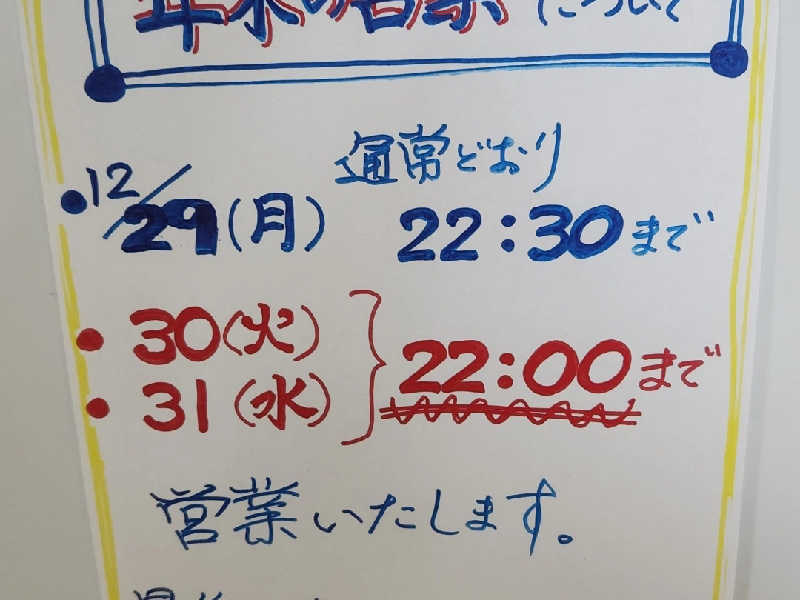 年末の営業について
・12/29(月) 通常どおり 22:30まで
・30(火)
・31(水) 22:00まで
営業いたします。